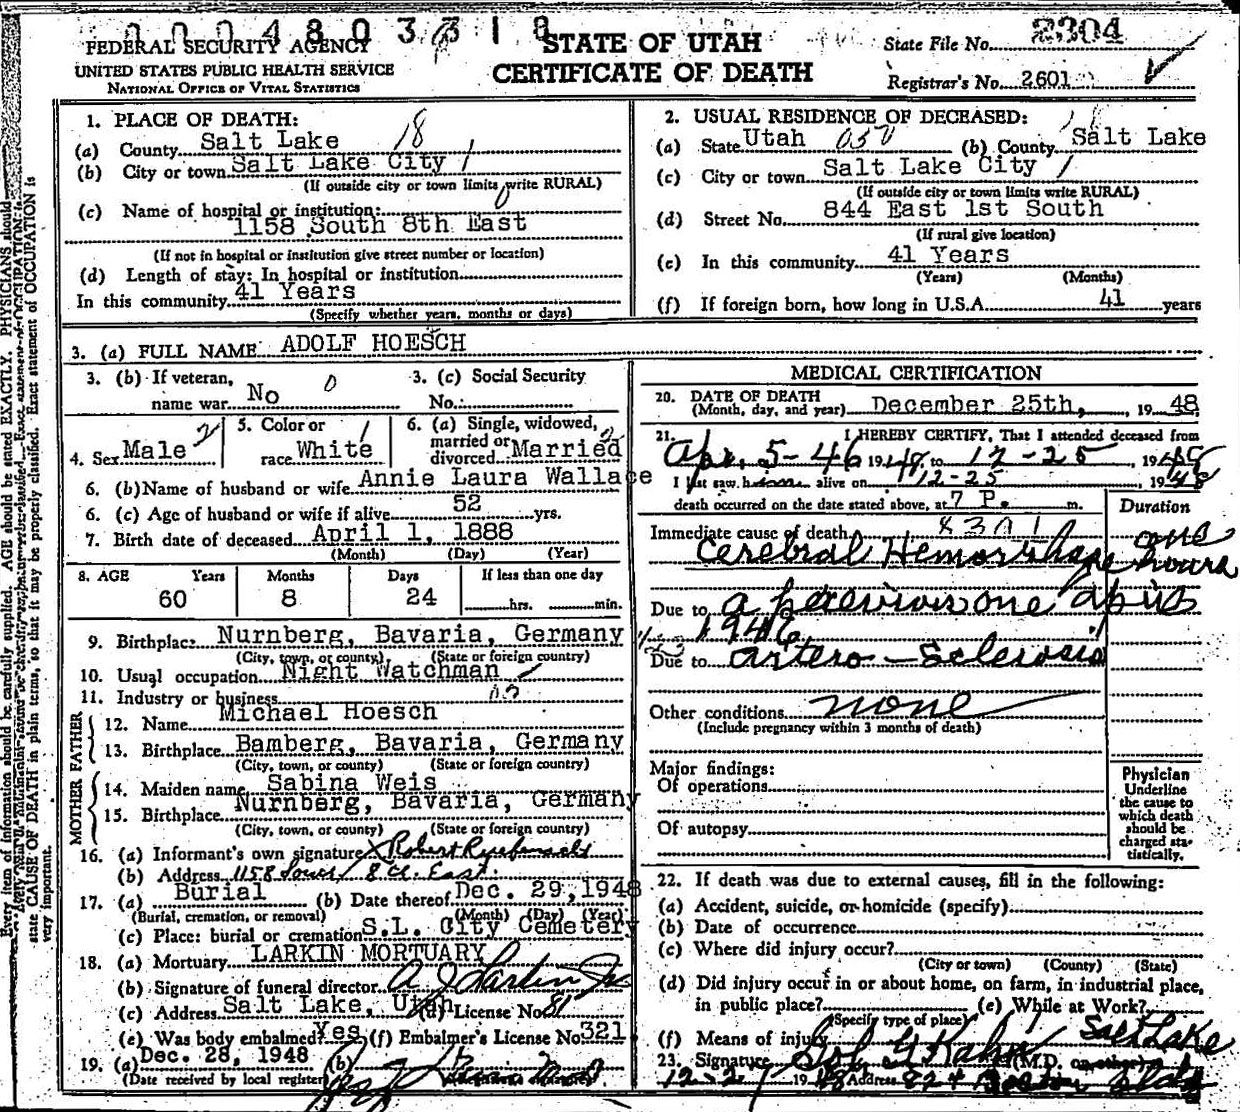 0004803318
2304
FEDERAL SECURITY AGENCY
UNITED STATES PUBLIC HEALTH SERVICE
NATIONAL OFFICE OF VITAL STATISTICS
STATE OF UTAH
CERTIFICATE OF DEATH
State File No.
Registrar's No. 2601
Every item of information should be carefully supplied. AGE should be stated EXACTLY. PHYSICIANS should
state CAUSE OF DEATH in plain terms, so that it may be properly classified. Exact statement of OCCUPATION is
very important.
1. PLACE OF DEATH:
(a) County Salt Lake 18
(b) City or town Salt Lake City 1
(If outside city or town limits write RURAL)
(c) Name of hospital or institution:
1158 South 8th East
(If not in hospital or institution give street number or location)
(d) Length of stay: In hospital or institution
In this community 41 Years
(Specify whether years, months or days)
2. USUAL RESIDENCE OF DECEASED:
(a) State Utah 050 (b) County Salt Lake
(c) City or town Salt Lake City 1
(If outside city or town limits write RURAL)
(d) Street No. 844 East 1st South
(If rural give location)
(e) In this community 41 Years
(Years) (Months)
(f) If foreign born, how long in U.S.A. 41 years
3. (a) FULL NAME ADOLF HOESCH
3. (b) If veteran, 0 3. (c) Social Security
name war No No.:
4. Sex Male 2 5. Color or race White 1 6. (a) Single, widowed, married or divorced Married 2
6. (b) Name of husband or wife Annie Laura Wallace
6. (c) Age of husband or wife if alive 52 yrs.
7. Birth date of deceased April 1, 1888
(Month) (Day) (Year)
8. AGE Years Months Days If less than one day
60 8 24 hrs. min.
9. Birthplace: Nurnberg, Bavaria, Germany
(City, town, or county) (State or foreign country)
10. Usual occupation Night Watchman
11. Industry or business
FATHER
12. Name Michael Hoesch
13. Birthplace Bamberg, Bavaria, Germany
(City, town, or county) (State or foreign country)
MOTHER
14. Maiden name Sabina Weis
15. Birthplace Nurnberg, Bavaria, Germany
(City, town, or county) (State or foreign country)
16. (a) Informant's own signature X Robert
(b) Address 1158 South 8th East.
17. (a) Burial (b) Date thereof Dec. 29, 1948
(Burial, cremation, or removal) (Month) (Day) (Year)
(c) Place: burial or cremation S.L. City Cemetery
18. (a) Mortuary LARKIN MORTUARY
(b) Signature of funeral director A J Larkin Jr
(c) Address Salt Lake, Utah (d) License No. 81
(e) Was body embalmed? Yes (f) Embalmer's License No. 321
19. (a) Dec. 28, 1948 (b)
(Date received by local register)
MEDICAL CERTIFICATION
20. DATE OF DEATH
(Month, day, and year) December 25th, 19 48
21. I HEREBY CERTIFY, That I attended deceased from
Apr. 5-46 19 to 12-25, 19 48
I last saw him alive on 12-25 19 48
death occurred on the date stated above, at 7 P. m.
Duration
Immediate cause of death
Cerebral Hemorrhage one hours
Due to a previous one Apr 5
1946
Due to Artero-Sclerosis
Other conditions none
(Include pregnancy within 3 months of death)
Major findings:
Of operations
Of autopsy
Physician
Underline
the cause to
which death
should be
charged sta-
tistically.
22. If death was due to external causes, fill in the following:
(a) Accident, suicide, or homicide (specify)
(b) Date of occurrence
(c) Where did injury occur?
(City or town) (County) (State)
(d) Did injury occur in or about home, on farm, in industrial place,
in public place? (e) While at Work?
(Specify type of place)
(f) Means of injury Salt Lake
23. Signature Sol G Kahn (M.D. or other)
12-27 19 48 Address 824 Boston Bldg